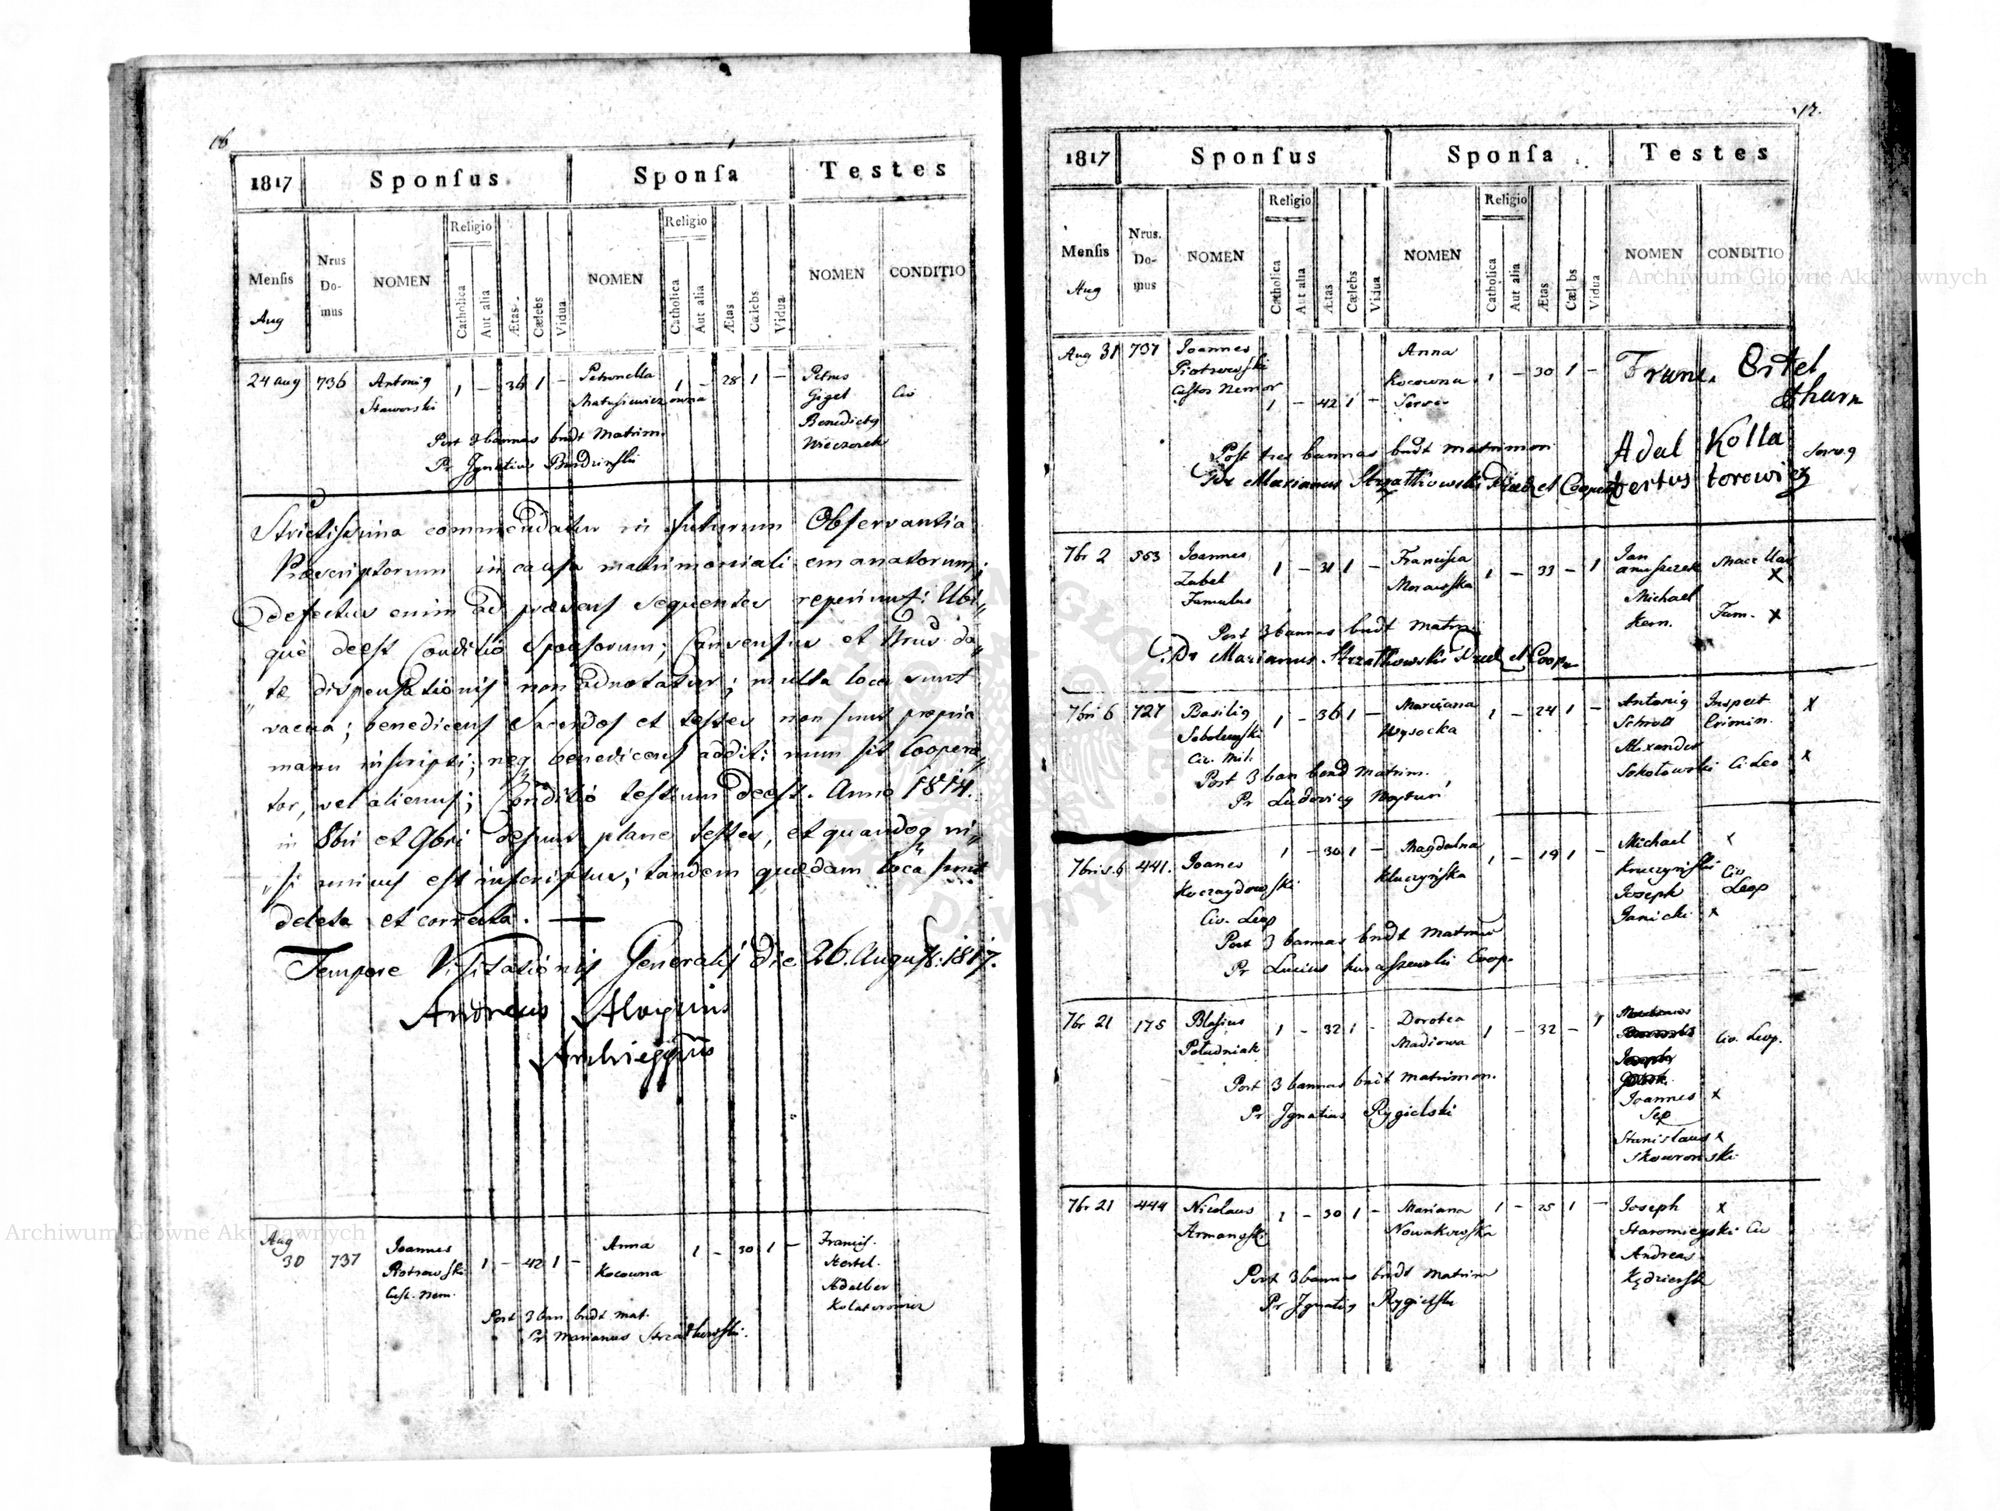 16
1817 Sponſus Sponſa Testes
Menſis Nrus Domus NOMEN Religio Catholica Aut alia Ætas Cælebs Vidua NOMEN Religio Catholica Aut alia Ætas Cælebs Vidua NOMEN CONDITIO
Aug
24 Aug 736 Antonig 1 – 36 1 – Petronella 1 – 28 1 – Petrus Civ
Staworski Matusiewiczowna Giget
Post 3 bannas bndt Matrim. Benedictg
Pr Ignatius Budzinski Wieczorek
Strictissima commendatur in futurum Observantia
Præscriptorum in causa matrimoniali emanatorum;
defectus enim ad præsens sequentes reperiuntur: Ubi„
què deest Conditio Sponsorum; Consensus et Nrus da„
tæ dispensationis non adnotatur; multa loca sunt
vacua; benedicens Sacerdos et testes non sunt propria
manu inscripti; neq benedicens addit: num sit Coopera„
tor, vel alienus; Conditio testium deest. Anno 1814.
in 8bri et 9bri desunt plane testes, et quandoq ni„
si unius est inscriptus; tandem quædam loca sunt
deleta et correcta. —
Tempore Visitationis Generalis die 26. August: 1817.
Andreas Aloysius
Archieppus
Aug
30 737 Joannes 1 – 42 1 – Anna 1 – 30 1 – Francis.
Piotrowski Kocowna Hertel.
Cust. Nem. Adalber
Post 3 ban bndt mat. Kolatorowicz
Pr Marianus Strzałkowski
17.
1817 Sponſus Sponſa Testes
Menſis Nrus. Domus NOMEN Religio Catholica Aut alia Ætas Cælebs Vidua NOMEN Religio Catholica Aut alia Ætas Cælebs Vidua NOMEN CONDITIO
Aug
Aug 31 737 Joannes Anna Franc. Ertel
Piotrowski Kocowna 1 – 30 1 –
Custos Nemor 1 – 42 1 –
Post tres bannas bndt matrimon Adal Kolla
Pr Marianus Strzałkowski Præd et Cooper bertus torowicz
7br 2 553 Joannes 1 – 31 1 – Francisca 1 – 33 – 1 Jan
Zubel Morawska anuszczek
Famulus Michael Fam. x
Post 3 bannas bndt matrim Kern.
Pr Marianus Strzałkowski Præd et Coop
7bri 6 727 Basilig 1 – 36 1 – Marcianna 1 – 24 1 – Antonig Inspect x
Sobolewski Wysocka Schrott Crimin.
Civ. Mil. Alexander
Post 3 ban bend Matrim. Sokołowski Ci Leo x
Pr Ludovicg
7bris. 6 441. Joanes 1 – 30 1 – Magdalna 1 – 19 1 – Michael x
Kluczyńska Kruczyński Civ
Civ. Leop Joseph Leop
Post 3 bannas bndt Matrim Janicki x
Pr Lucius Coop.
7br 21 175 Blasius 1 – 32 1 – Dorotea 1 – 32 – 1 Civ. Leop.
Południak Madiowa
Post 3 bannas bndt matrimon. Joannes x
Pr Ignatius Rygielski Sep
Stanislaus x
Skowronski
7br 21 444 Nicolaus 1 – 30 1 – Mariana 1 – 25 1 – Joseph x
Armanski Nowakowska Staromieyski Civ
Post 3 bannas bndt Matrim Andreas
Pr Ignatig Rygielski Kędzierski
Archiwum Główne Akt Dawnych
Archiwum Główne Akt Dawnych